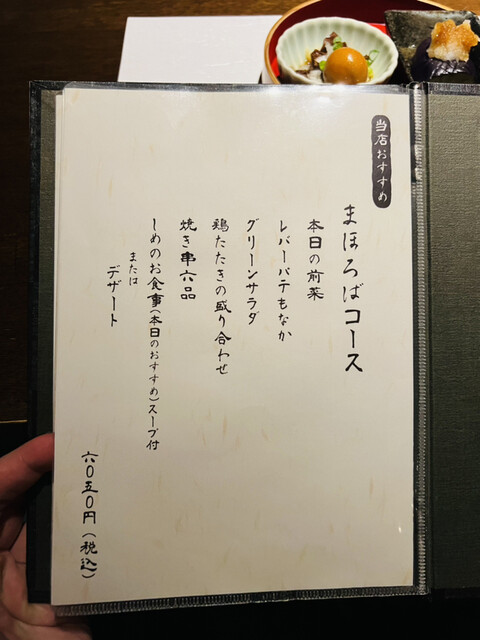 当店おすすめ
まほろばコース
本日の前菜
レバーパテもなか
グリーンサラダ
鶏たたきの盛り合わせ
焼き串六品
しめのお食事(本日のおすすめ)スープ付
または
デザート
六〇五〇円(税込)